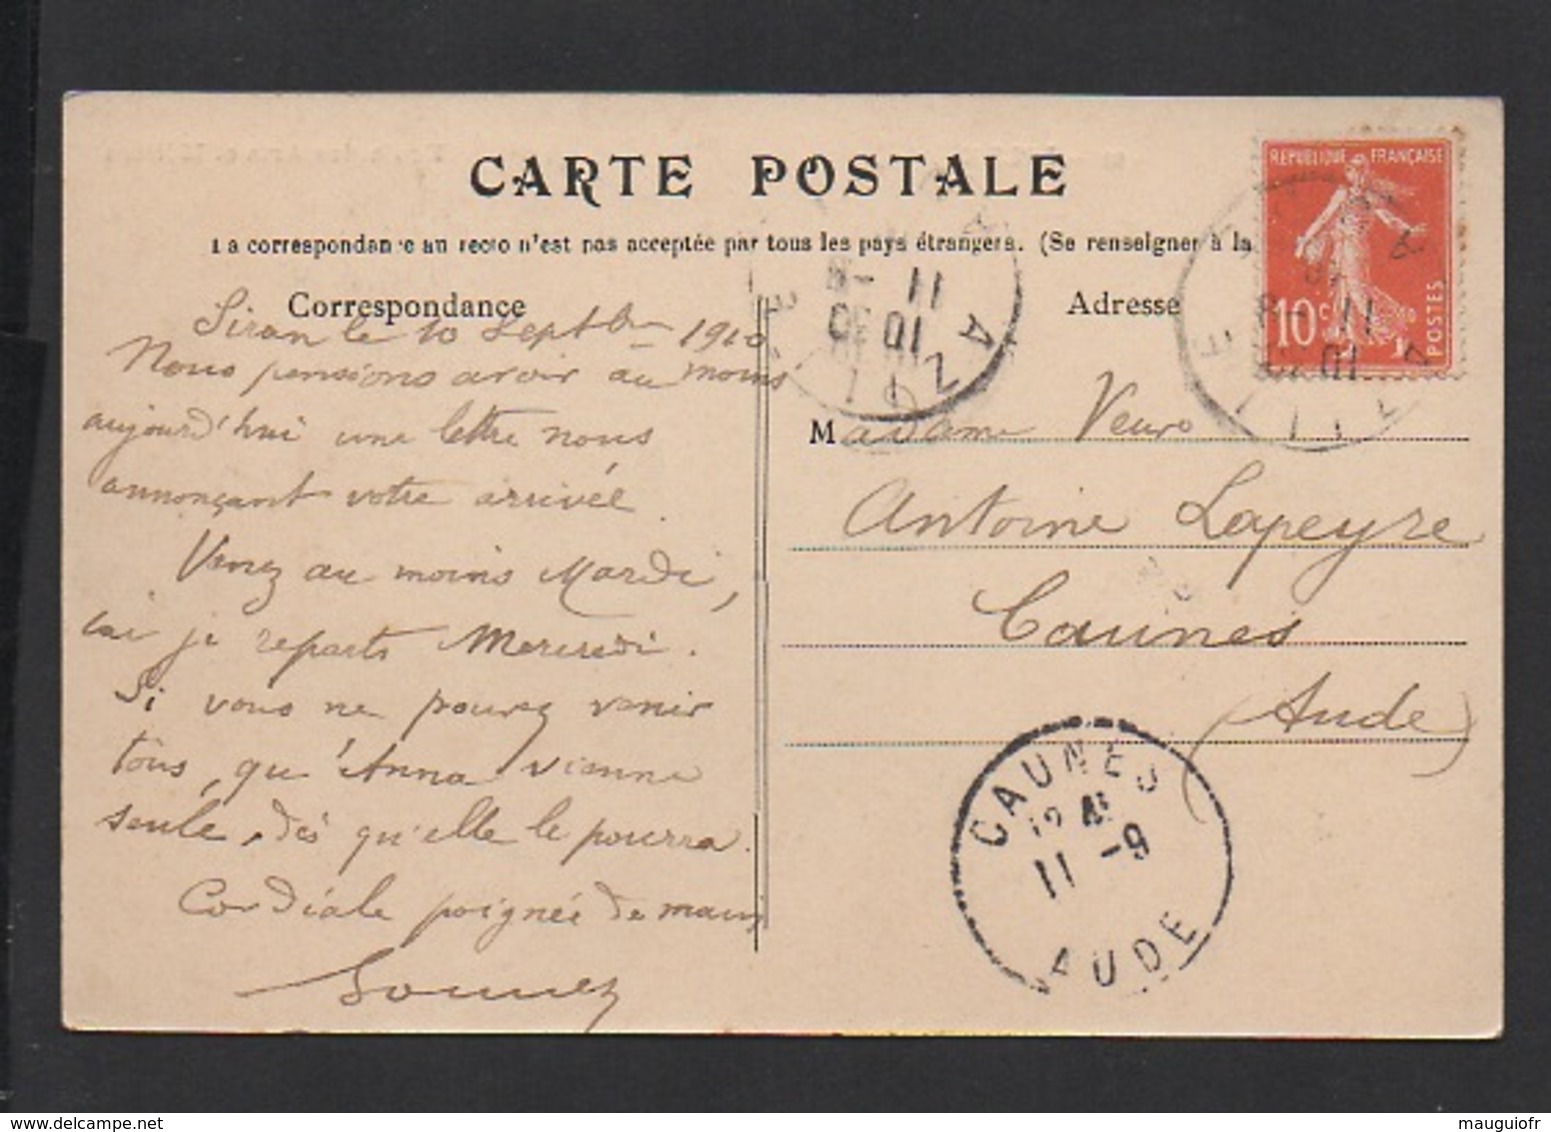 CARTE POSTALE
La correspondance au recto n'est pas acceptée par tous les pays étrangers. (Se renseigner à la
Correspondance
Siran le 10 Septbre 1910
Nous pensions avoir au moins
aujourd'hui une lettre nous
annonçant votre arrivée.
Venez au moins Mardi,
car je repars Mercredi.
Si vous ne pouvez venir
tous, qu'Anna vienne
seule, dès qu'elle le pourra.
Cordiale poignée de main
Adresse
Madame Veuve
Antoine Lapeyre
Caunes
(Aude)
RÉPUBLIQUE FRANÇAISE
10 c
POSTES
11 -9
10
11 -9
10
CAUNES
12
11 -9
AUDE
mauguiofr